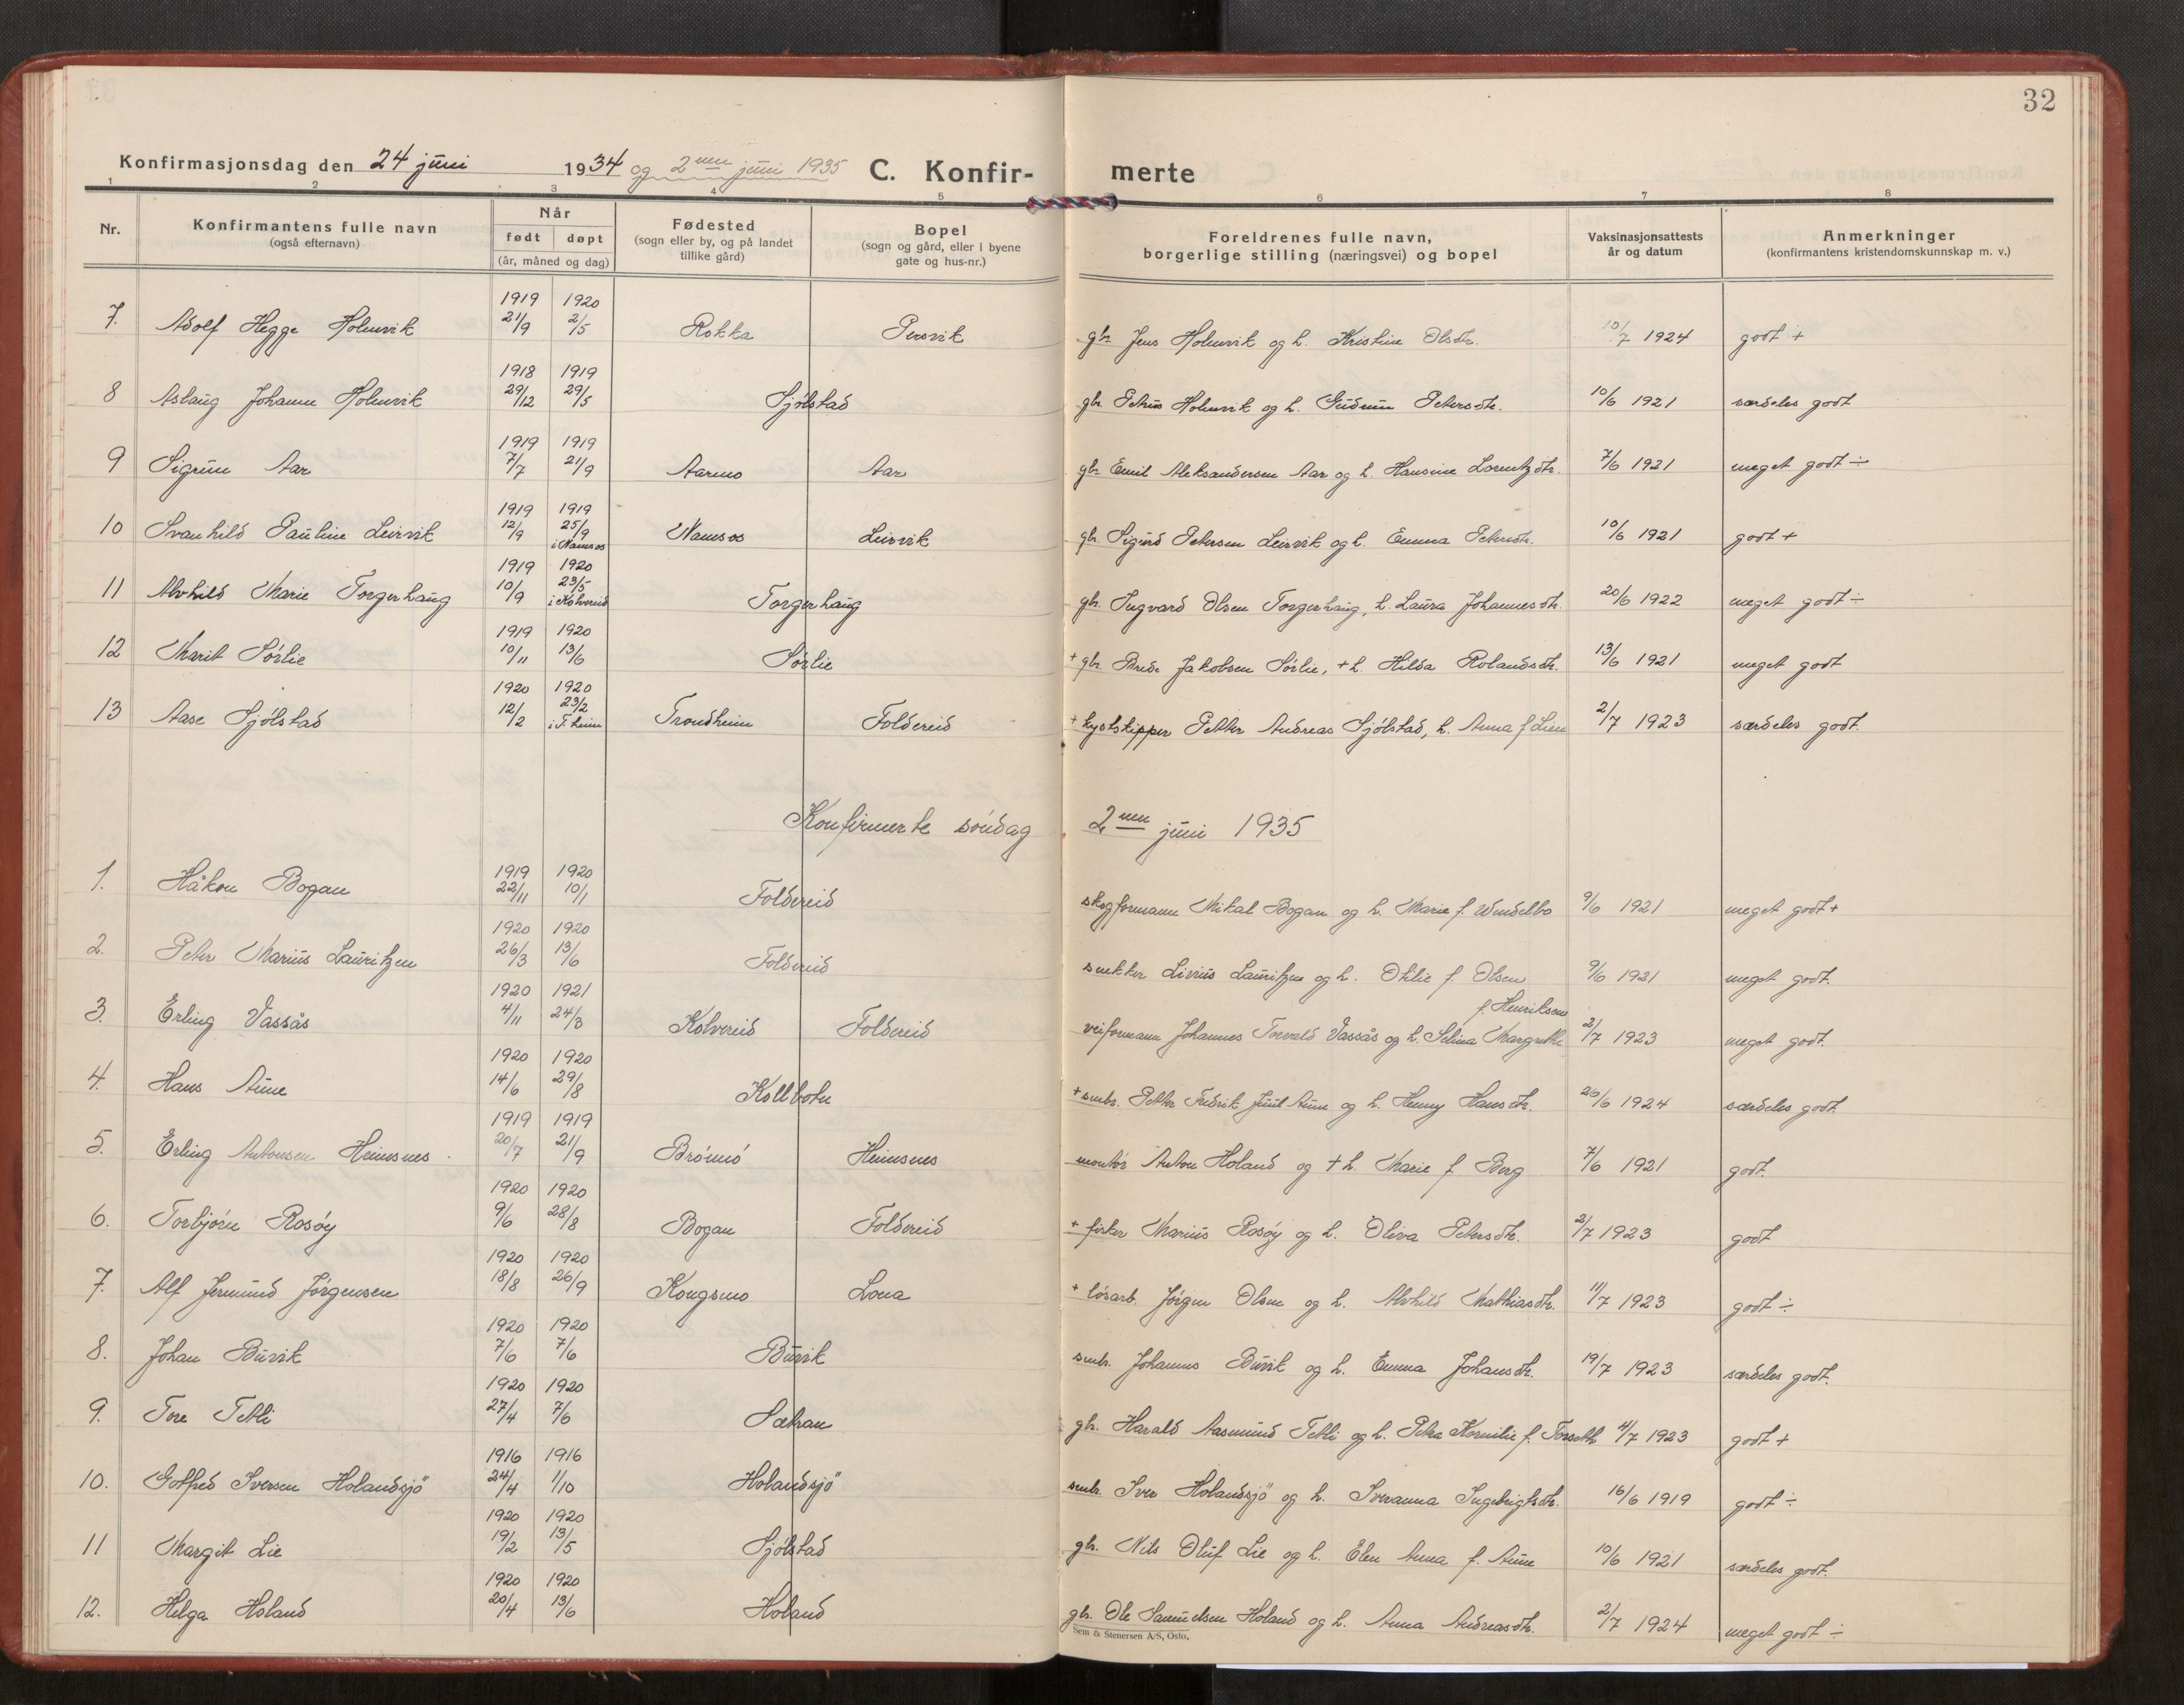 32
Konfirmasjonsdag den 24 juni 1934 og 2nen juni 1935 C. Konfir- merte
1 2 3 4 5 6 7 8
Nr. Konfirmantens fulle navn (også efternavn) Når født døpt (år, måned og dag) Fødested (sogn eller by, og på landet tillike gård) Bopel (sogn og gård, eller i byene gate og hus-nr.) Foreldrenes fulle navn, borgerlige stilling (næringsvei) og bopel Vaksinasjonsattests år og datum Anmerkninger (konfirmantens kristendomskunnskap m. v.)
7. Adolf Hegge Holmvik 1919 21/9 1920 2/5 Rokka gbr Jens Holmvik og h. Kristine Olsdtr. 10/7 1924 godt +
8 Aslaug Johanne Holmvik 1918 29/12 1919 29/5 Sjólstad gbr. Petrus Holmvik og h. Gudrun Petersdtr. 10/6 1921 særdeles godt
9 Sigrun Aar 1919 7/7 1919 21/9 Aarmo Aar gbr. Emil Aleksandersen Aar og h. Hansine Lorentzdtr. 7/6 1921 meget godt ÷
10 Svanhild Pauline Leirvik 1919 12/9 1919 25/9 i Namsos Namsos Leirvik gbr. Sigurd Petersen Leirvik og h. Emma Petersdtr. 10/6 1921 godt +
11 Alvhild Marie Torgerhaug 1919 10/9 1920 23/5 i Kolvereid Torgerhaug gbr. Ingvard Olsen Torgerhaug, h. Laura Johannesdtr. 20/6 1922 meget godt ÷
12 Marit Sórlie 1919 10/11 1920 13/6 Sórlie + gbr. Jakobsen Sórlie, + h. Hilda Rolandsdtr. 13/6 1921 meget godt
13 Aase Sjólstad 1920 12/2 1920 23/2 i T.heim Trondheim Foldereid + kystskipper Petter Andreas Sjólstad, h. Anna f Lien 2/7 1923 særdeles godt.
Konfirmerte sóndag 2nen juni 1935
1. Håkon Bogan 1919 22/11 1920 10/1 Foldereid skogformann Mikal Bogan og h. Marie f. Wendelbo 9/6 1921 meget godt +
2. Peter Marius Lauritzen 1920 26/3 1920 13/6 Foldereid snekker Livius Lauritzen og h. Otilie f. Olsen 9/6 1921 meget godt.
f. Henriksen
3. Erling Vassås 1920 4/11 1921 24/3 Kolvereid Foldereid veiformann Johannes Torvald Vassås og h. Selina Margrethe 2/7 1923 meget godt.
4. Hans Aune 1920 14/6 1920 29/8 Kollbotn + smbr. Petter Fredrik Juul Aune og h. Henny Hansdtr. 26/6 1924 særdeles godt
5. Erling Antonsen Heimsnes. 1919 20/7 1919 21/9 Brómó Heimsnes montór Anton Holand og + h. Marie f. Berg 7/6 1921 godt.
6. Torbjórn Rosóy 1920 9/6 1920 28/8 Bogan Foldereid + fisker Marius Rosóy og h. Oliva Petersdtr. 2/7 1923 godt
7. Alf Jermund Jórgensen 1920 18/8 1920 26/9 Kongsmo Lona + lósarb. Jórgen Olsen og h. Alvhild Mathiasdtr. 11/7 1923 godt ÷
8. Johan Buvik 1920 7/6 1920 7/6 Buvik smbr. Johannes Buvik og h. Emma Johansdtr. 19/7 1923 særdeles godt.
9. Tore Tetli 1920 27/4 1920 7/6 Sætran gbr. Harald Aasmund Tetli og h. Petra Kornilie f. Forseth 4/7 1923 godt +
10. Gotfred Iversen Holandsjö 1916 24/4 1916 1/10 Holandsjö smbr. Iver Holandsjö og h. Iveranna Ingebrigtsdtr. 16/6 1919 godt ÷
11 Margit Lie 1920 19/2 1920 13/5 Sjólstad gbr. Nils Oluf Lie og h. Elen Anna f. Aune 10/6 1921 særdeles godt.
12. Helga Holand 1920 20/4 1920 13/6 Holand gbr. Ole Samuelsen Holand og h. Anna Andreasdtr. 2/7 1924 meget godt ÷
Sem & Stenersen A/S, Oslo.